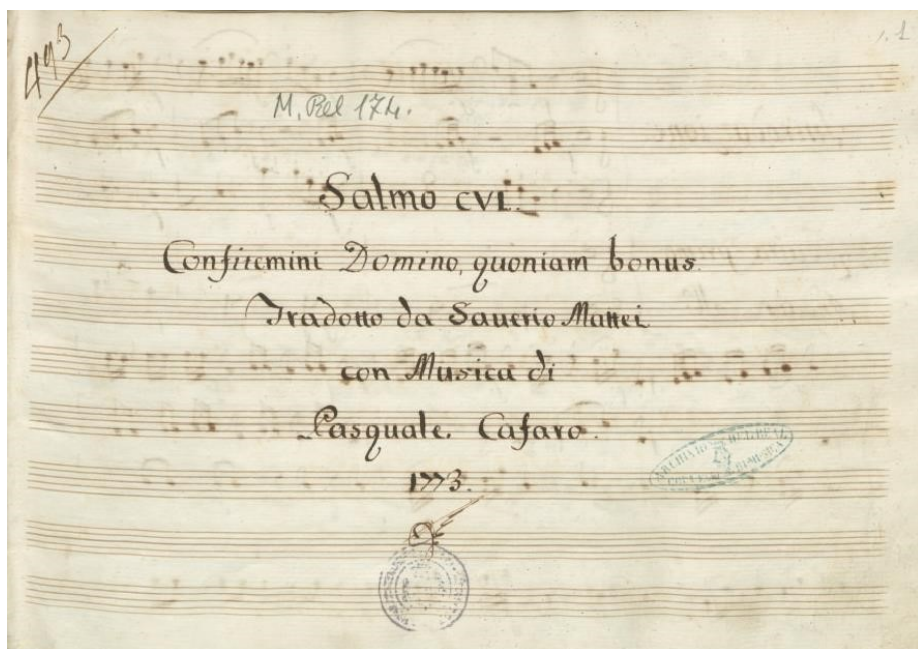 493
1
M. Rel 174.
Salmo CVI.
Confitemini Domino, quoniam bonus.
Tradotto da Saverio Mattei
con Musica di
Pasquale Cafaro.
ARCHIVIO DEL REAL
1773.